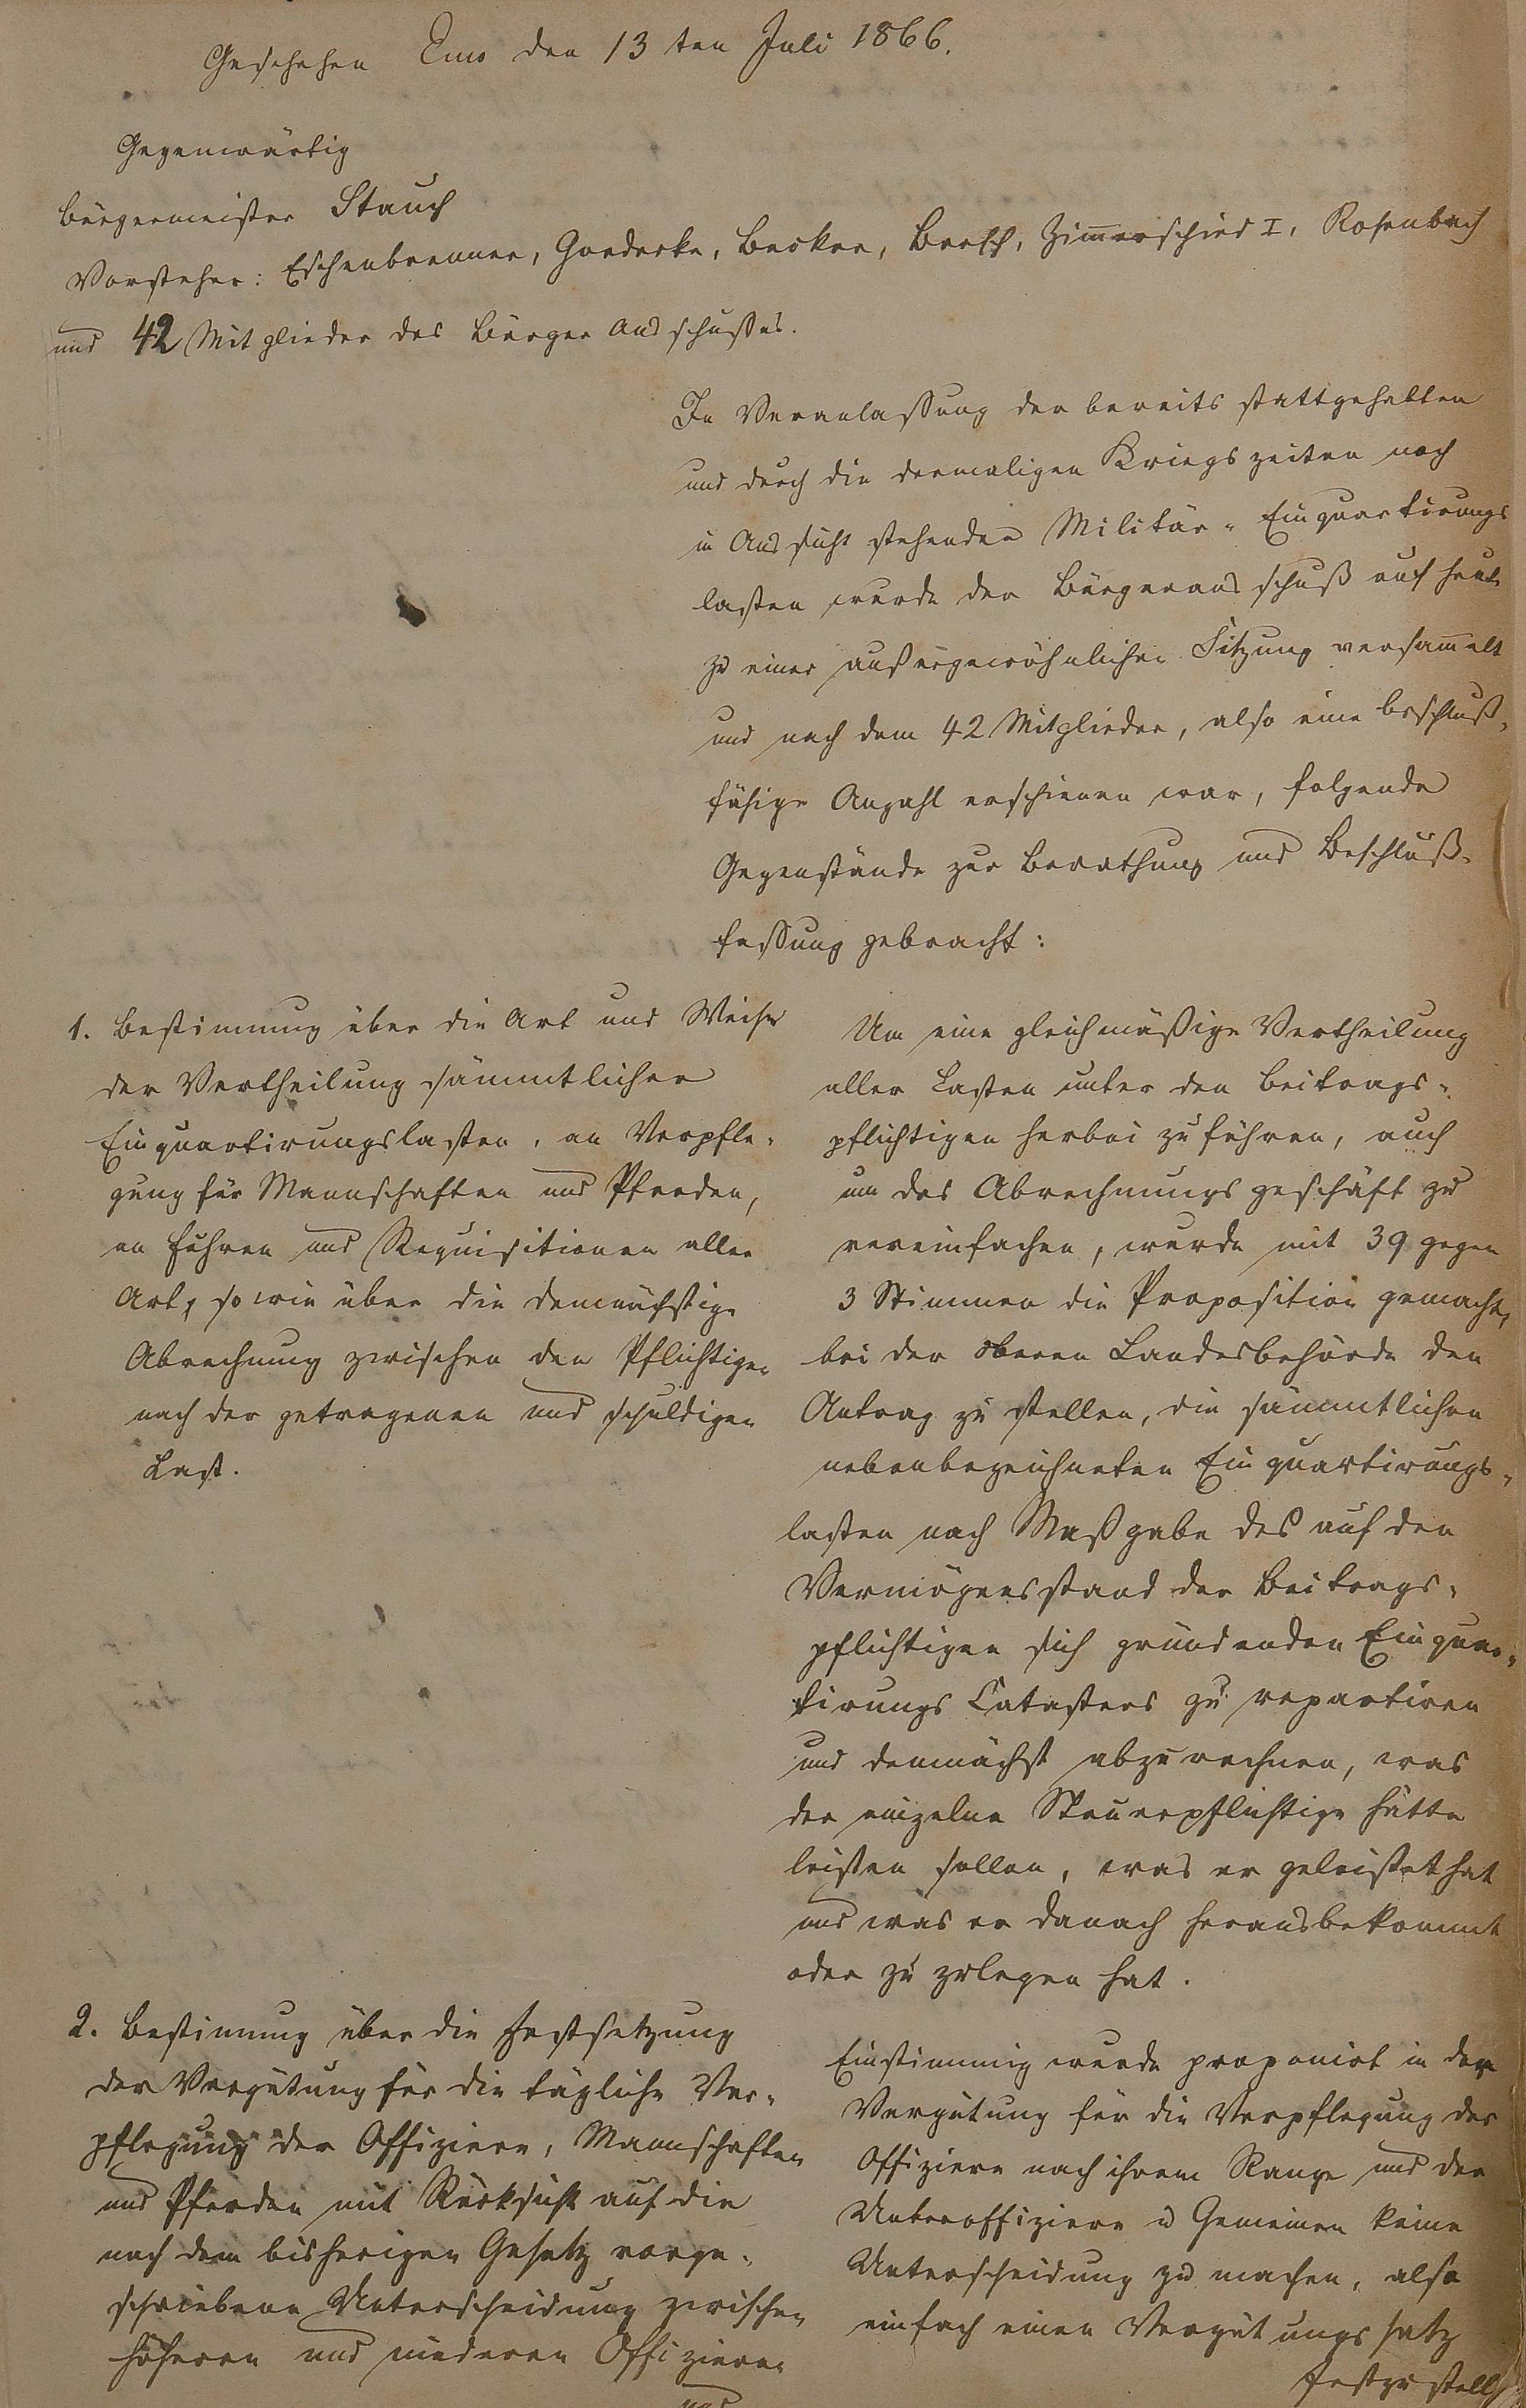 Geschehen Ems den 13ten Juli 1866.
Gegenwärtig
Bürgermeister Stauch
Vorsteher: Eschenbrenner, Goedecke, Becker, Zimerschied I, Rosenbach
und 42 Mitglieder des Bürger Ausschußes.
In Veranlassung der bereits stattgehabten
und durch die dermaligen Kriegszeiten noch
in Aussicht stehenden Militär-Einquartirungs
lasten wurde der Bürgerausschuß auf heute
zu einer außergewöhnlichen Sitzung versamelt
und nach dem 42 Mitglieder, also eine beschluß-
fähige Anzahl erschienen war, folgende
Gegenstände zur Berathung und Beschluß-
fassung gebracht:
1. Bestimmung über die Art und Weise
der Vertheilung sämmtlicher
Einquartirungslasten, an Verpfle-
gung für Mannschaften und Pferden,
an Fuhren und Requisitionen aller
Art, so wie über die demnächstige
Abrechnung zwischen den Pflichtigen
nach der getragenen und schuldigen
Last.
Um eine gleichmäßige Vertheilung
aller Lasten unter den Beitrags-
pflichtigen herbei zu führen, auch
um das Abrechnungsgeschäft zu
vereinfachen, wurde mit 39 gegen
3 Stimmen die Proposition gemacht,
bei der oberen Landesbehörde den
Antrag zu stellen, die sämmtlichen
nebenbezeichneten Einquartirungs-
lasten nach Maßgabe des auf den
Vermögensstand der Beitrags-
pflichtigen sich gründenden Einquar-
tirungs Catasters zu repartiren
und demnächst abzurechnen, was
der einzelne Steuerpflichtige hätte
leisten sollen, was er geleistet hat
und was er danach herausbekommt
oder zu zulegen hat.
2. Bestimung über die Festsetzung
der Vergütung für die tägliche Ver-
pflegung der Offiziere, Mannschaften
und Pferden mit Rücksicht auf die
nach dem bisherigen Gesetz vorge-
schriebene Unterscheidung zwischen
höheren und niederen Offizieren
und
Einstimmig wurde proponirt in der
Vergütung für die Verpflegung der
Offiziere nach ihrem Range und der
Unteroffiziere u Gemeinen keine
Unterscheidung zu machen, also
einfach einen Vergütungssatz
festzustell